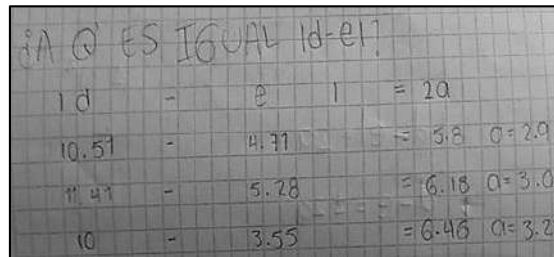 ¿A Q' ES IGUAL |d-e|?
|d - e| = 2a
10.51 - 4.71 = 5.8 a=2.9
11.41 - 5.28 = 6.18 a=3.0
10 - 3.55 = 6.46 a=3.2